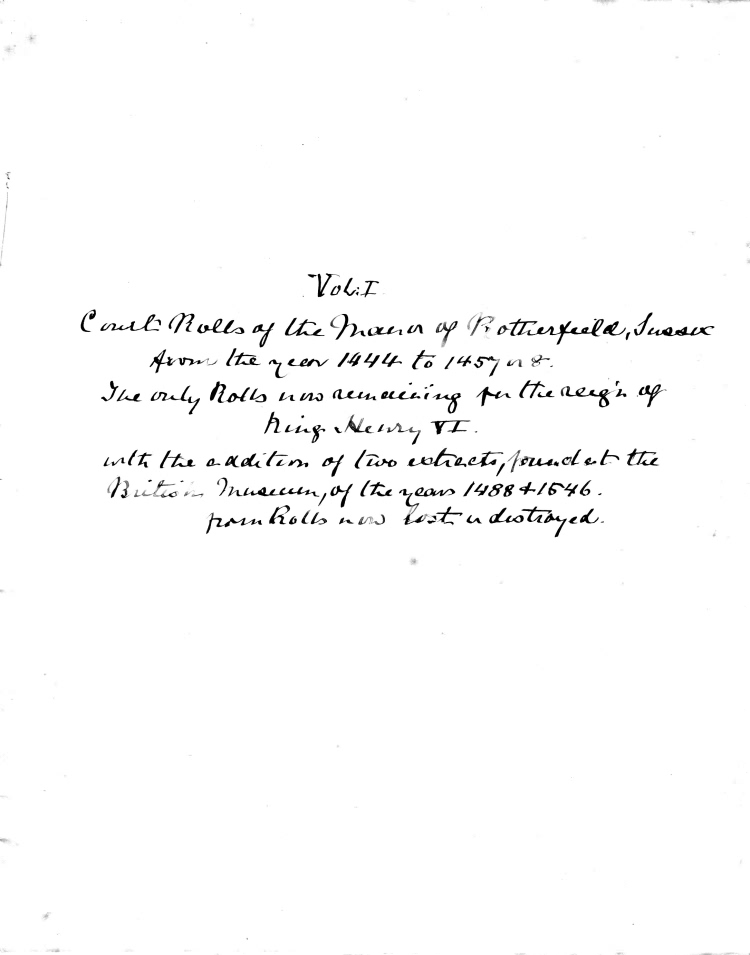 Vol: I
Court Rolls of the Manor of Rotherfield, Sussex
from the year 1444 to 1457 or 8.
The only Rolls now remaining for the reign of
King Henry VI.
with the addition of two extracts, found at the
British Museum, of the years 1488 & 1546.
from Rolls now lost or destroyed.